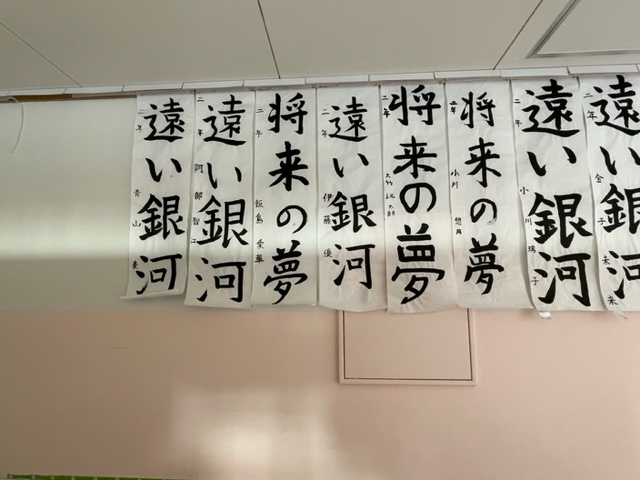 遠い銀河
二年 青山
遠い銀河
二年 阿部智江
将来の夢
二年 飯島愛華
遠い銀河
二年 伊藤優
将来の夢
二年
将来の夢
二年 小川悠月
遠い銀河
二年 小川瑞子
遠い銀河
二年 金子未来